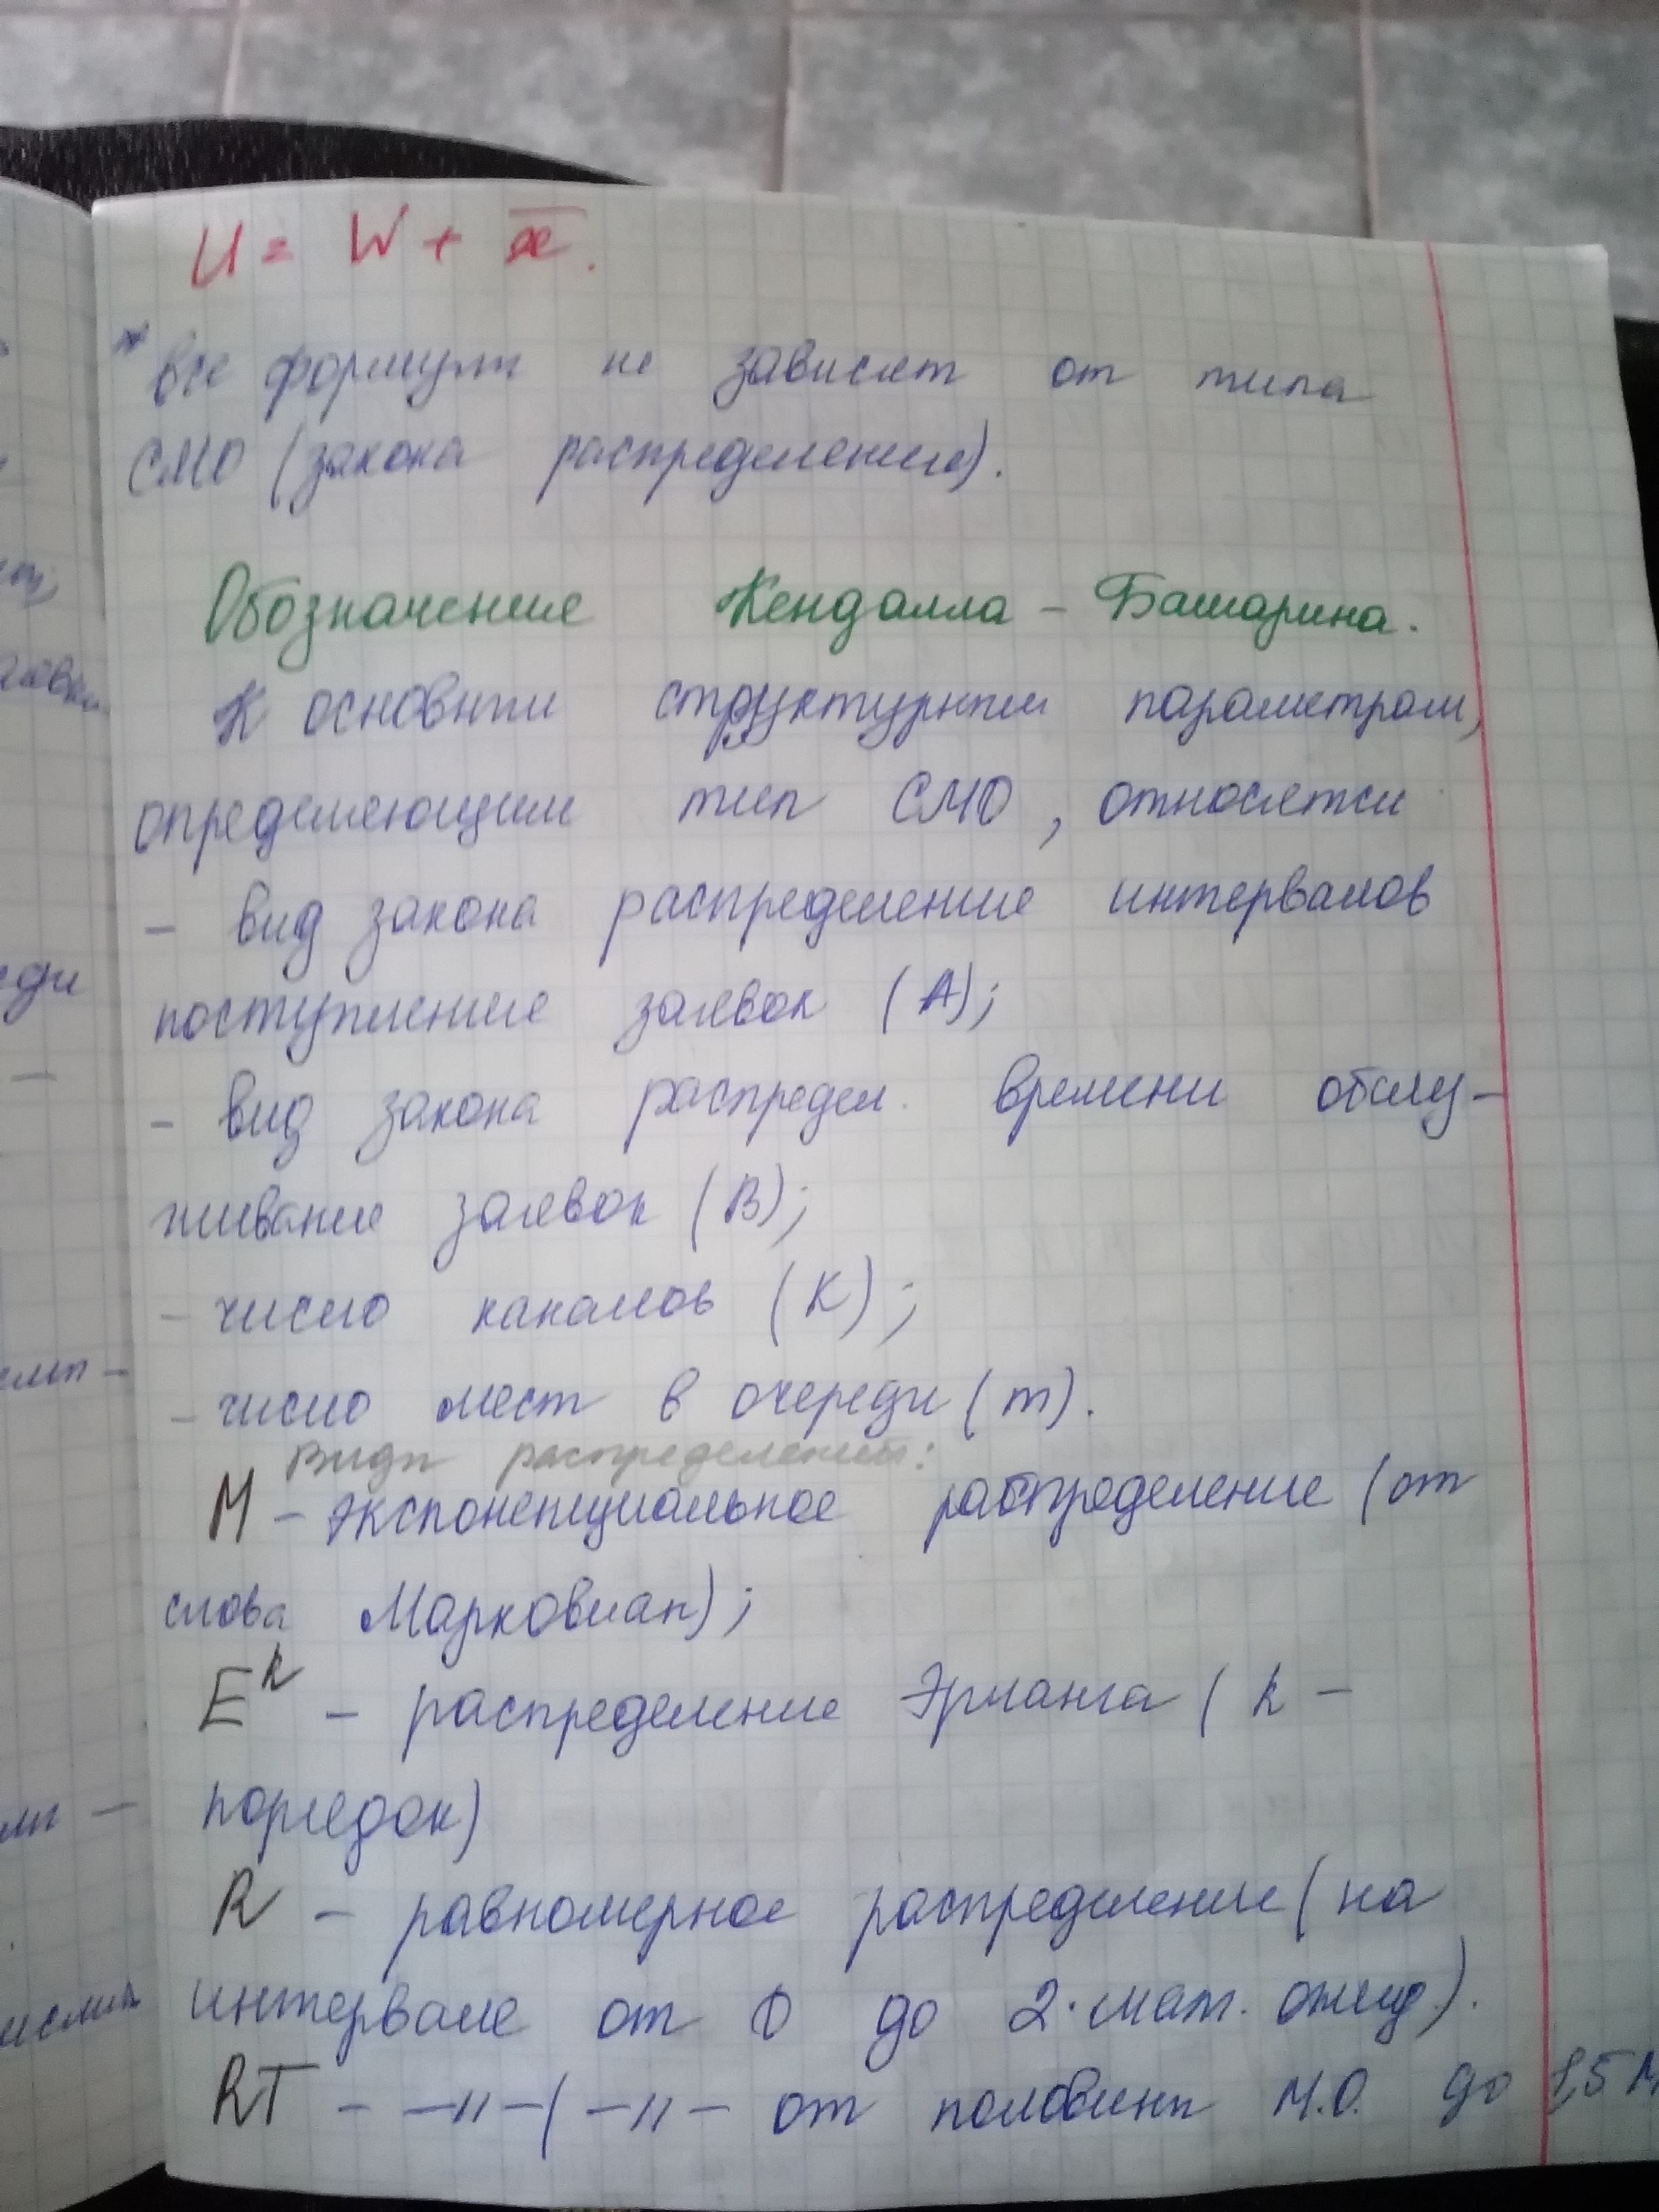 U = W + x̅.
* все формулы не зависят от типа
СМО (закона распределения).
Обозначение Кендалла – Башарина.
К основным структурным параметрам,
определяющим тип СМО, относятся
- вид закона распределения интервалов
поступления заявок (А);
- вид закона распредел. времени обслу-
живания заявок (В);
- число каналов (К);
- число мест в очереди (m).
Виды распределений:
М - экспоненциальное распределение (от
слова Марковиан);
E^k - распределение Эрланга (k -
порядок)
R - равномерное распределение (на
интервале от 0 до 2·мат. ожид.).
RT - —"— (—"— от половины М.О. до 1,5 М